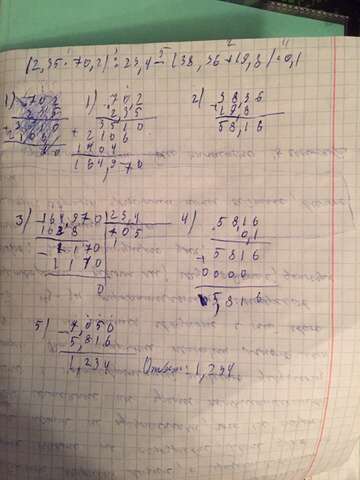 (2,35 · 70,2) : 23,4 - (38,36 + 19,8) · 0,1
1) 702 1) 70,2 2) 38,36
2,35 + 19,8
3510 3510 58,16
2106 + 2106
1404
164,970
3) 164,970 | 23,4 4) 5816
1638 705 0,1
- 1170 + 5816
1170 0000
0 5,816
5) - 7,050
5,816
1,234 Ответ: 1,234